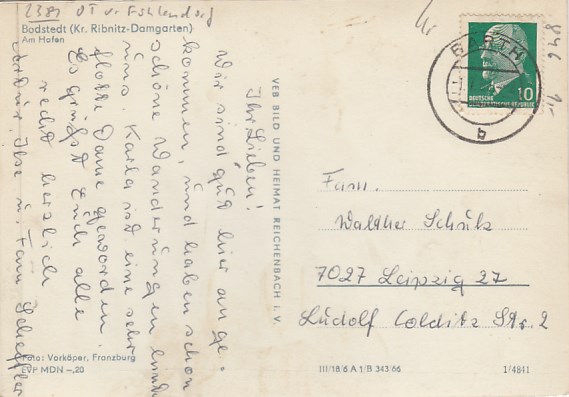 2381 OT v. Fuhlendorf
Bodstedt (Kr. Ribnitz-Damgarten)
Am Hafen
Ihr Lieben!
Wir sind gut hier ange-
kommen, und haben schon
schöne Wanderungen hinter
uns. Karla ist eine sehr
flotte Dame geworden.
Es grüßt Euch alle
recht herzlich
Ilse u. Fam Scheffler
Foto: Vorköper, Franzburg
EVP MDN –,20
VEB BILD UND HEIMAT REICHENBACH i. V.
BARTH
b
10
DEUTSCHE
DEMOKRATISCHE REPUBLIK
846
Fam.
Walther Schulz
7027 Leipzig 27
Ludolf Colditz Str. 2
III/18/6 A 1/B 343 66
1/4841